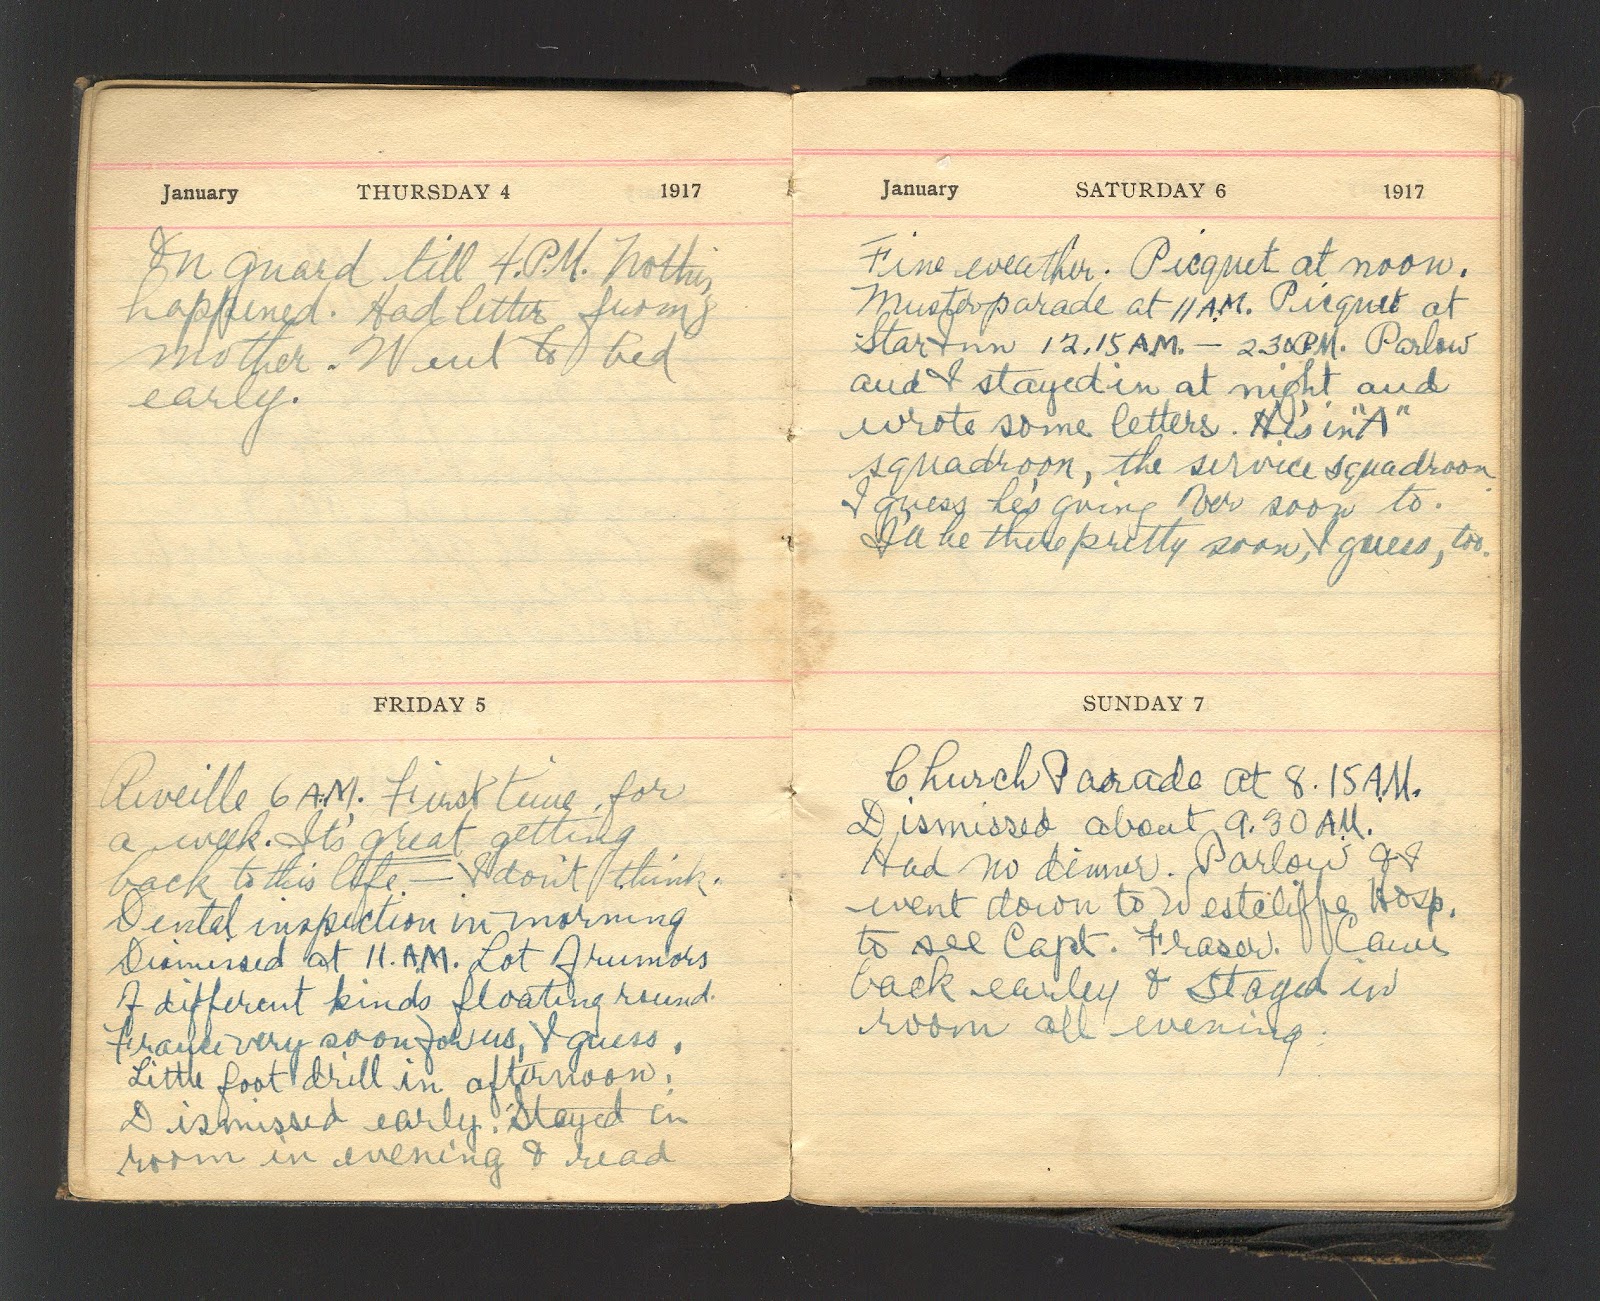 January THURSDAY 4 1917
On guard till 4.P.M. Nothing
happened. Had letter from
mother. Went to bed
early.
FRIDAY 5
Reveille 6 A.M. First time for
a week. It's great getting
back to this life — I don't think.
Dental inspection in morning
Dismissed at 11.A.M. Lot of rumors
of different kinds floating round.
France very soon for us, I guess.
Little foot drill in afternoon.
Dismissed early. Stayed in
room in evening & read
January SATURDAY 6 1917
Fine weather. Picquet at noon.
Muster parade at 11 A.M. Picquet at
Star Inn 12.15 A.M. — 2.30 P.M. Parlow
and I stayed in at night and
wrote some letters. He's in "A"
squadroon, the service squadroon
I guess he's going over soon to.
I'll be there pretty soon, I guess, too.
SUNDAY 7
Church Parade at 8.15 A.M.
Dismissed about 9.30 A.M.
Had no dinner. Parlow & I
went down to Westcliffe Hosp.
to see Capt. Fraser. Came
back earley & stayed in
room all evening.